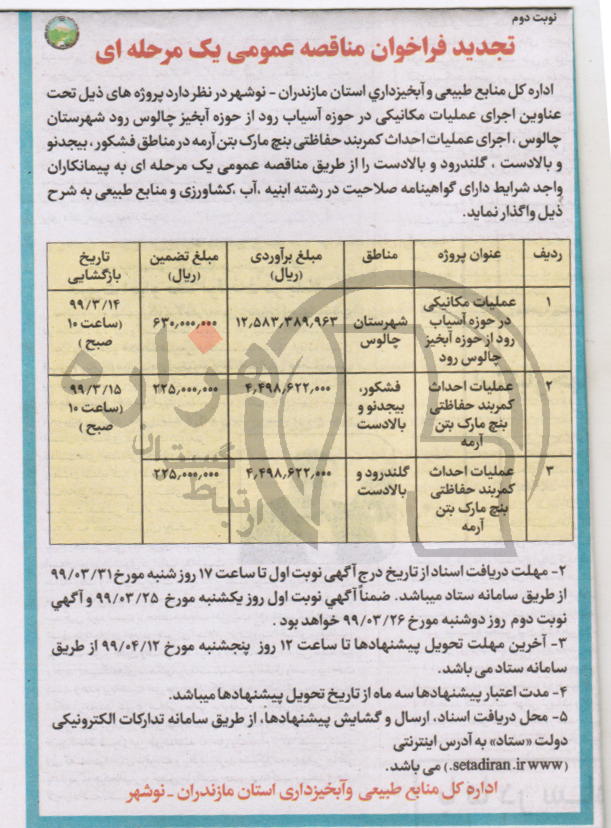 نوبت دوم
تجدید فراخوان مناقصه عمومی یک مرحله ای
اداره کل منابع طبیعی و آبخیزداری استان مازندران - نوشهر در نظر دارد پروژه های ذیل تحت
عناوین اجرای عملیات مکانیکی در حوزه آسیاب رود از حوزه آبخیز چالوس رود شهرستان
چالوس ، اجرای عملیات احداث کمربند حفاظتی بنچ مارک بتن آرمه در مناطق فشکور، بیجدنو
و بالادست ، گلندرود و بالادست را از طریق مناقصه عمومی یک مرحله ای به پیمانکاران
واجد شرایط دارای گواهینامه صلاحیت در رشته ابنیه ،آب ،کشاورزی و منابع طبیعی به شرح
ذیل واگذار نماید.
ردیف عنوان پروژه مناطق مبلغ برآوردی (ریال) مبلغ تضمین (ریال) تاریخ بازگشایی
۱ عملیات مکانیکی در حوزه آسیاب رود از حوزه آبخیز چالوس رود شهرستان چالوس ۱۲,۵۸۳,۳۸۹,۹۶۳ ۶۳۰,۰۰۰,۰۰۰ ۹۹/۳/۱۴ (ساعت ۱۰ صبح )
۲ عملیات احداث کمربند حفاظتی بنچ مارک بتن آرمه فشکور، بیجدنو و بالادست ۴,۴۹۸,۶۲۲,۰۰۰ ۲۲۵,۰۰۰,۰۰۰ ۹۹/۳/۱۵ (ساعت ۱۰ صبح )
۳ عملیات احداث کمربند حفاظتی بنچ مارک بتن آرمه گلندرود و بالادست ۴,۴۹۸,۶۲۲,۰۰۰ ۲۲۵,۰۰۰,۰۰۰
۲- مهلت دریافت اسناد از تاریخ درج آگهی نوبت اول تا ساعت ۱۷ روز شنبه مورخ ۹۹/۰۳/۳۱
از طریق سامانه ستاد میباشد. ضمناً آگهی نوبت اول روز یکشنبه مورخ ۹۹/۰۳/۲۵ و آگهي
نوبت دوم روز دوشنبه مورخ ۹۹/۰۳/۲۶ خواهد بود .
۳- آخرین مهلت تحویل پیشنهادها تا ساعت ۱۲ روز پنجشنبه مورخ ۹۹/۰۴/۱۲ از طریق
سامانه ستاد می باشد.
۴- مدت اعتبار پیشنهادها سه ماه از تاریخ تحویل پیشنهادها میباشد.
۵- محل دریافت اسناد، ارسال و گشایش پیشنهادها، از طریق سامانه تدارکات الکترونیکی
دولت «ستاد» به آدرس اینترنتی
(setadiran.ir www.) می باشد.
اداره کل منابع طبیعی وآبخیزداری استان مازندران - نوشهر
هزاره
گستران
ارتباط